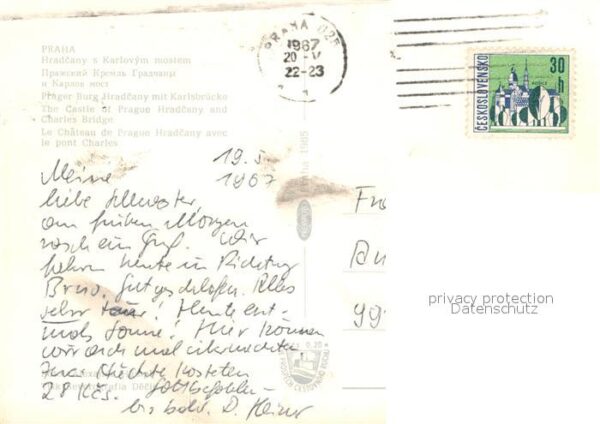 PRAHA
Hradčany s Karlovým mostem
Пражский Кремль Градчани
и Карлов мост
Prager Burg Hradčany mit Karlsbrücke
The Castle of Prague Hradčany and
Charles Bridge
Le Château de Prague Hradčany avec
le pont Charles
PRAHA 025
1967
20 -V
22-23
ČESKOSLOVENSKO
30
h
19.5.
1967
Meine
liebe Schwester,
am frühen Morgen
rasch ein Gruß. Wir
fahren heute in Richtung
Brno. Gut geschlafen. Alles
sehr teuer! Heute erst-
mals Sonne! Hier können
wir auch mal übernachten
Zwei Nächte kosteten
28 Kčs. Gottbefohlen
bis bald. D. Heiner
Fr
99
privacy protection
Datenschutz